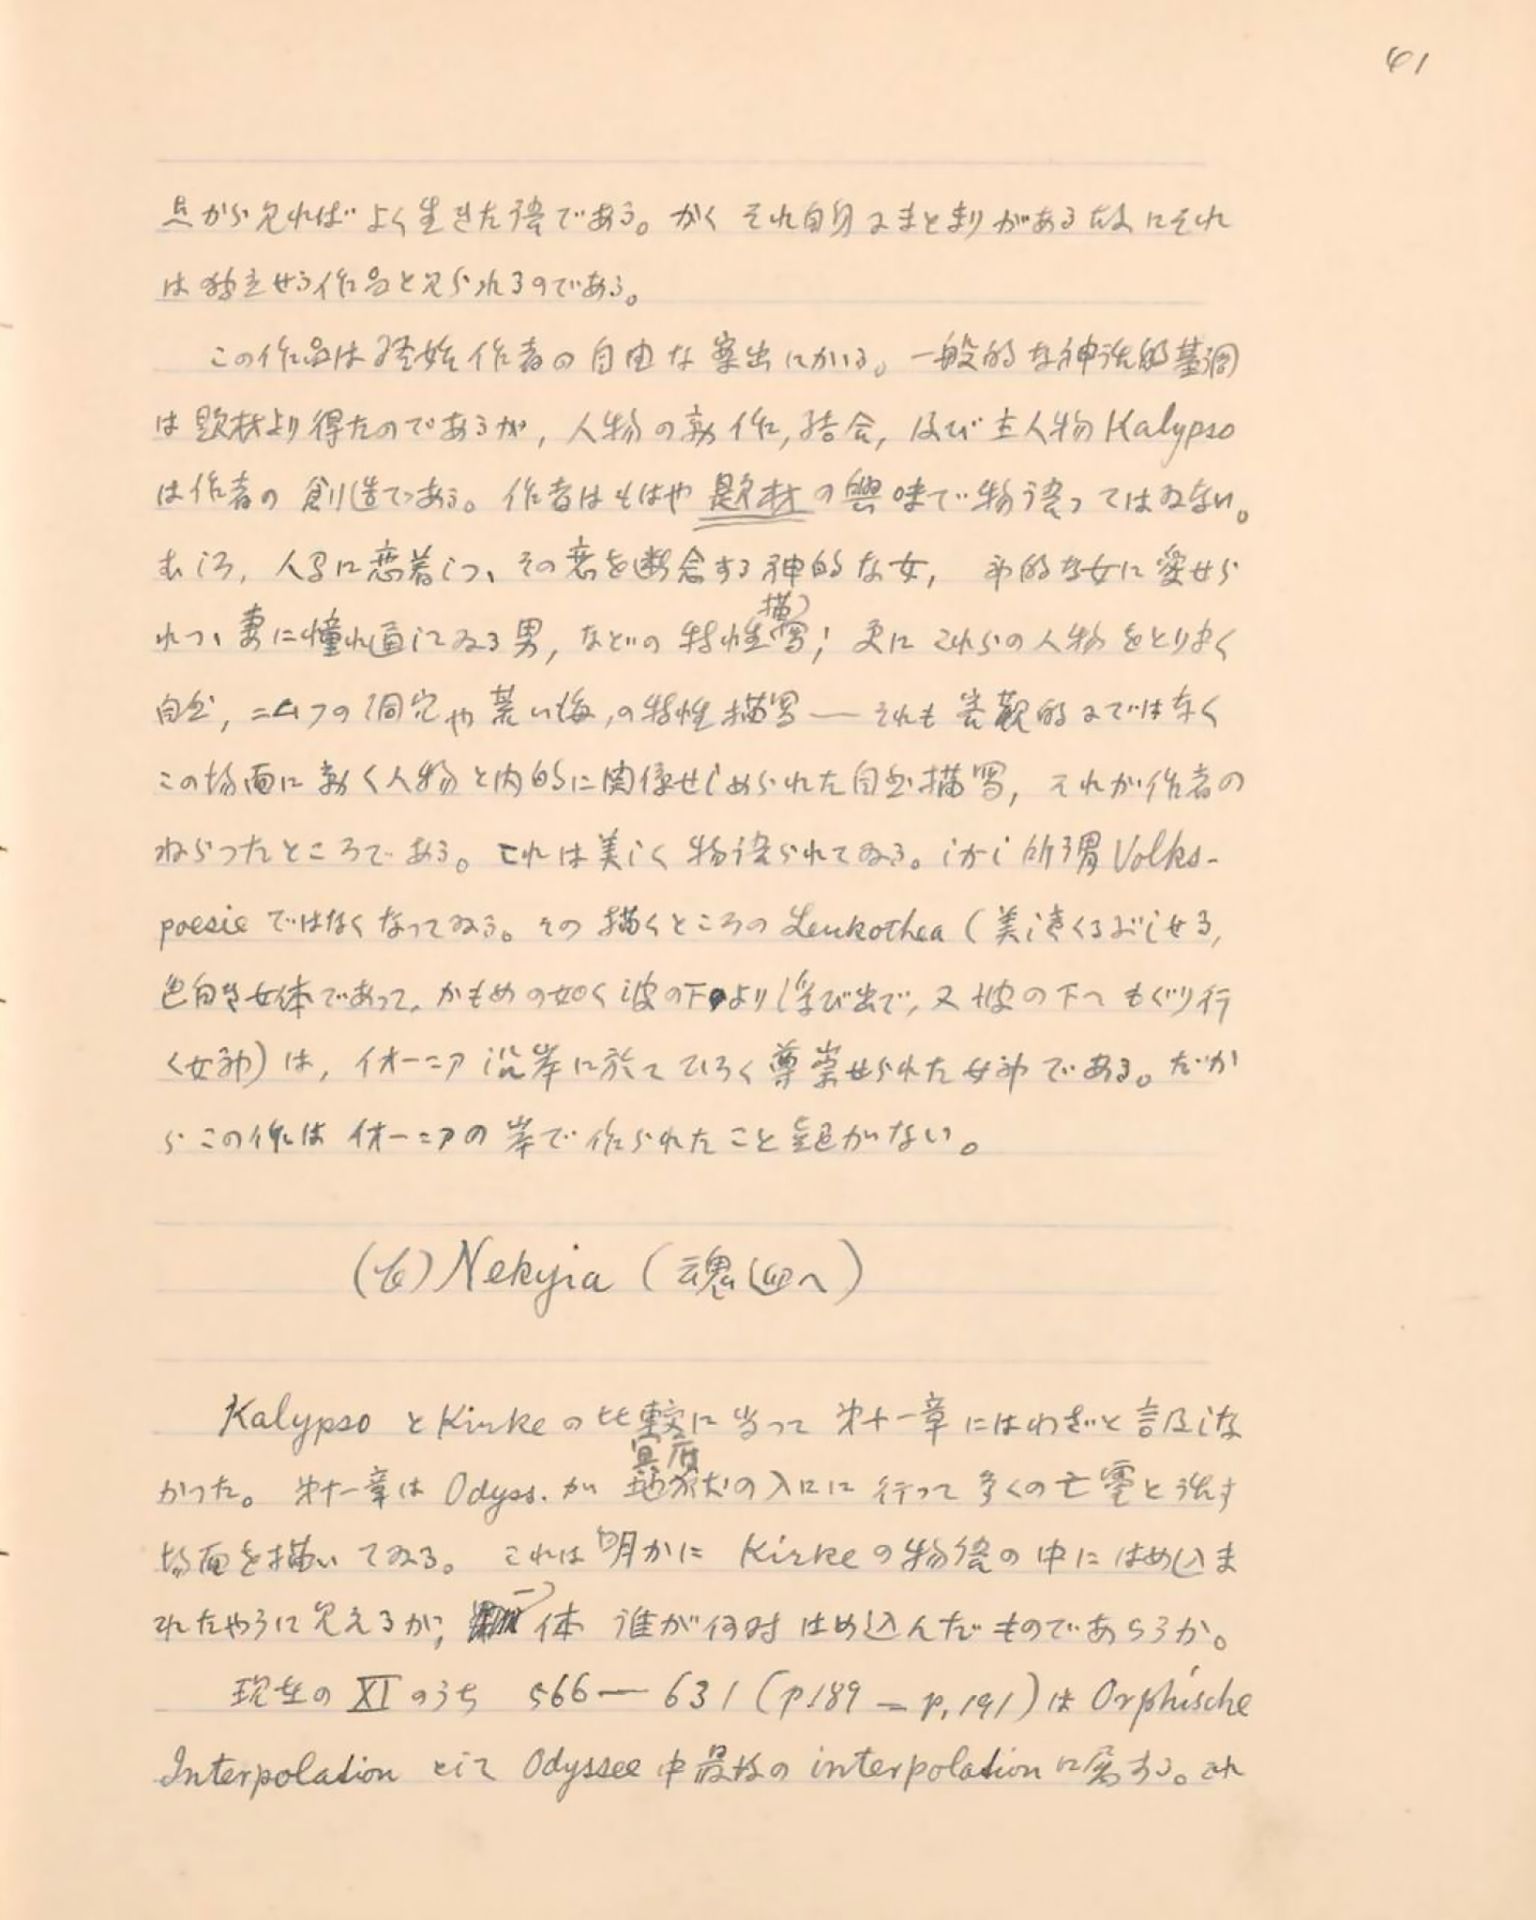 61
点から見ればよく生きた語である。かく それ自身にまとまりがある故にそれ
は独立せる作品と見られるのである。
この作品は終始作者の自由な案出にかゝる。一般的な神話的基調
は題材より得たのであるが, 人物の動作, 結合, 及び主人物 Kalypso
は作者の創造である。作者はもはや題材の興味で物語ってはゐない。
むしろ, 人間に恋着しつゝその恋を断念する神的な女, 神的な女に愛せら
れつゝ妻に憧れ通してゐる男, などの特性描写; 更にこれらの人物をとりまく
自然, ニムフの洞穴や荒い海, の特性描写 — それも客観的にではなく
この場面に動く人物と内的に関係せしめられた自然描写, それが作者の
ねらつたところである。これは美しく物語られてゐる。しかし所謂 Volks-
poesie ではなくなってゐる。その描くところの Leukothea (美しきくるぶしせる,
色白き女体であって, かもめの如く波の下より浮び出で, 又波の下へもぐり行
く女神) は, イオーニア沿岸に於てひろく尊崇せられた女神である。だか
らこの作は イオーニアの岸で作られたこと疑がない。
(七) Nekyia (魂迎へ)
Kalypso と Kirke の比較に当って 第十一章にはわざと言及しな
かつた。第十一章は Odyss. が 冥府の入口に行って多くの亡霊と話す
場面を描いてゐる。これは明かに Kirke の物語の中にはめ込ま
れたやうに見えるが, 一体 誰が何時はめ込んだものであらうか。
現在の XI のうち 566 — 631 (p.189 — p.191) は Orphische
Interpolation として Odyssee 中最後の interpolation に属する。これ